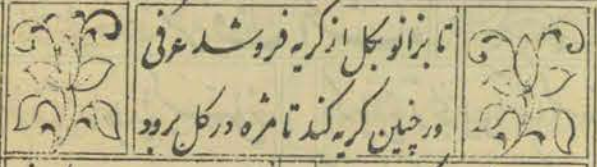 تا بزانو بکل از کریه فرو شد عرفی
ور چنین کریه کند تا مژه در کل برود